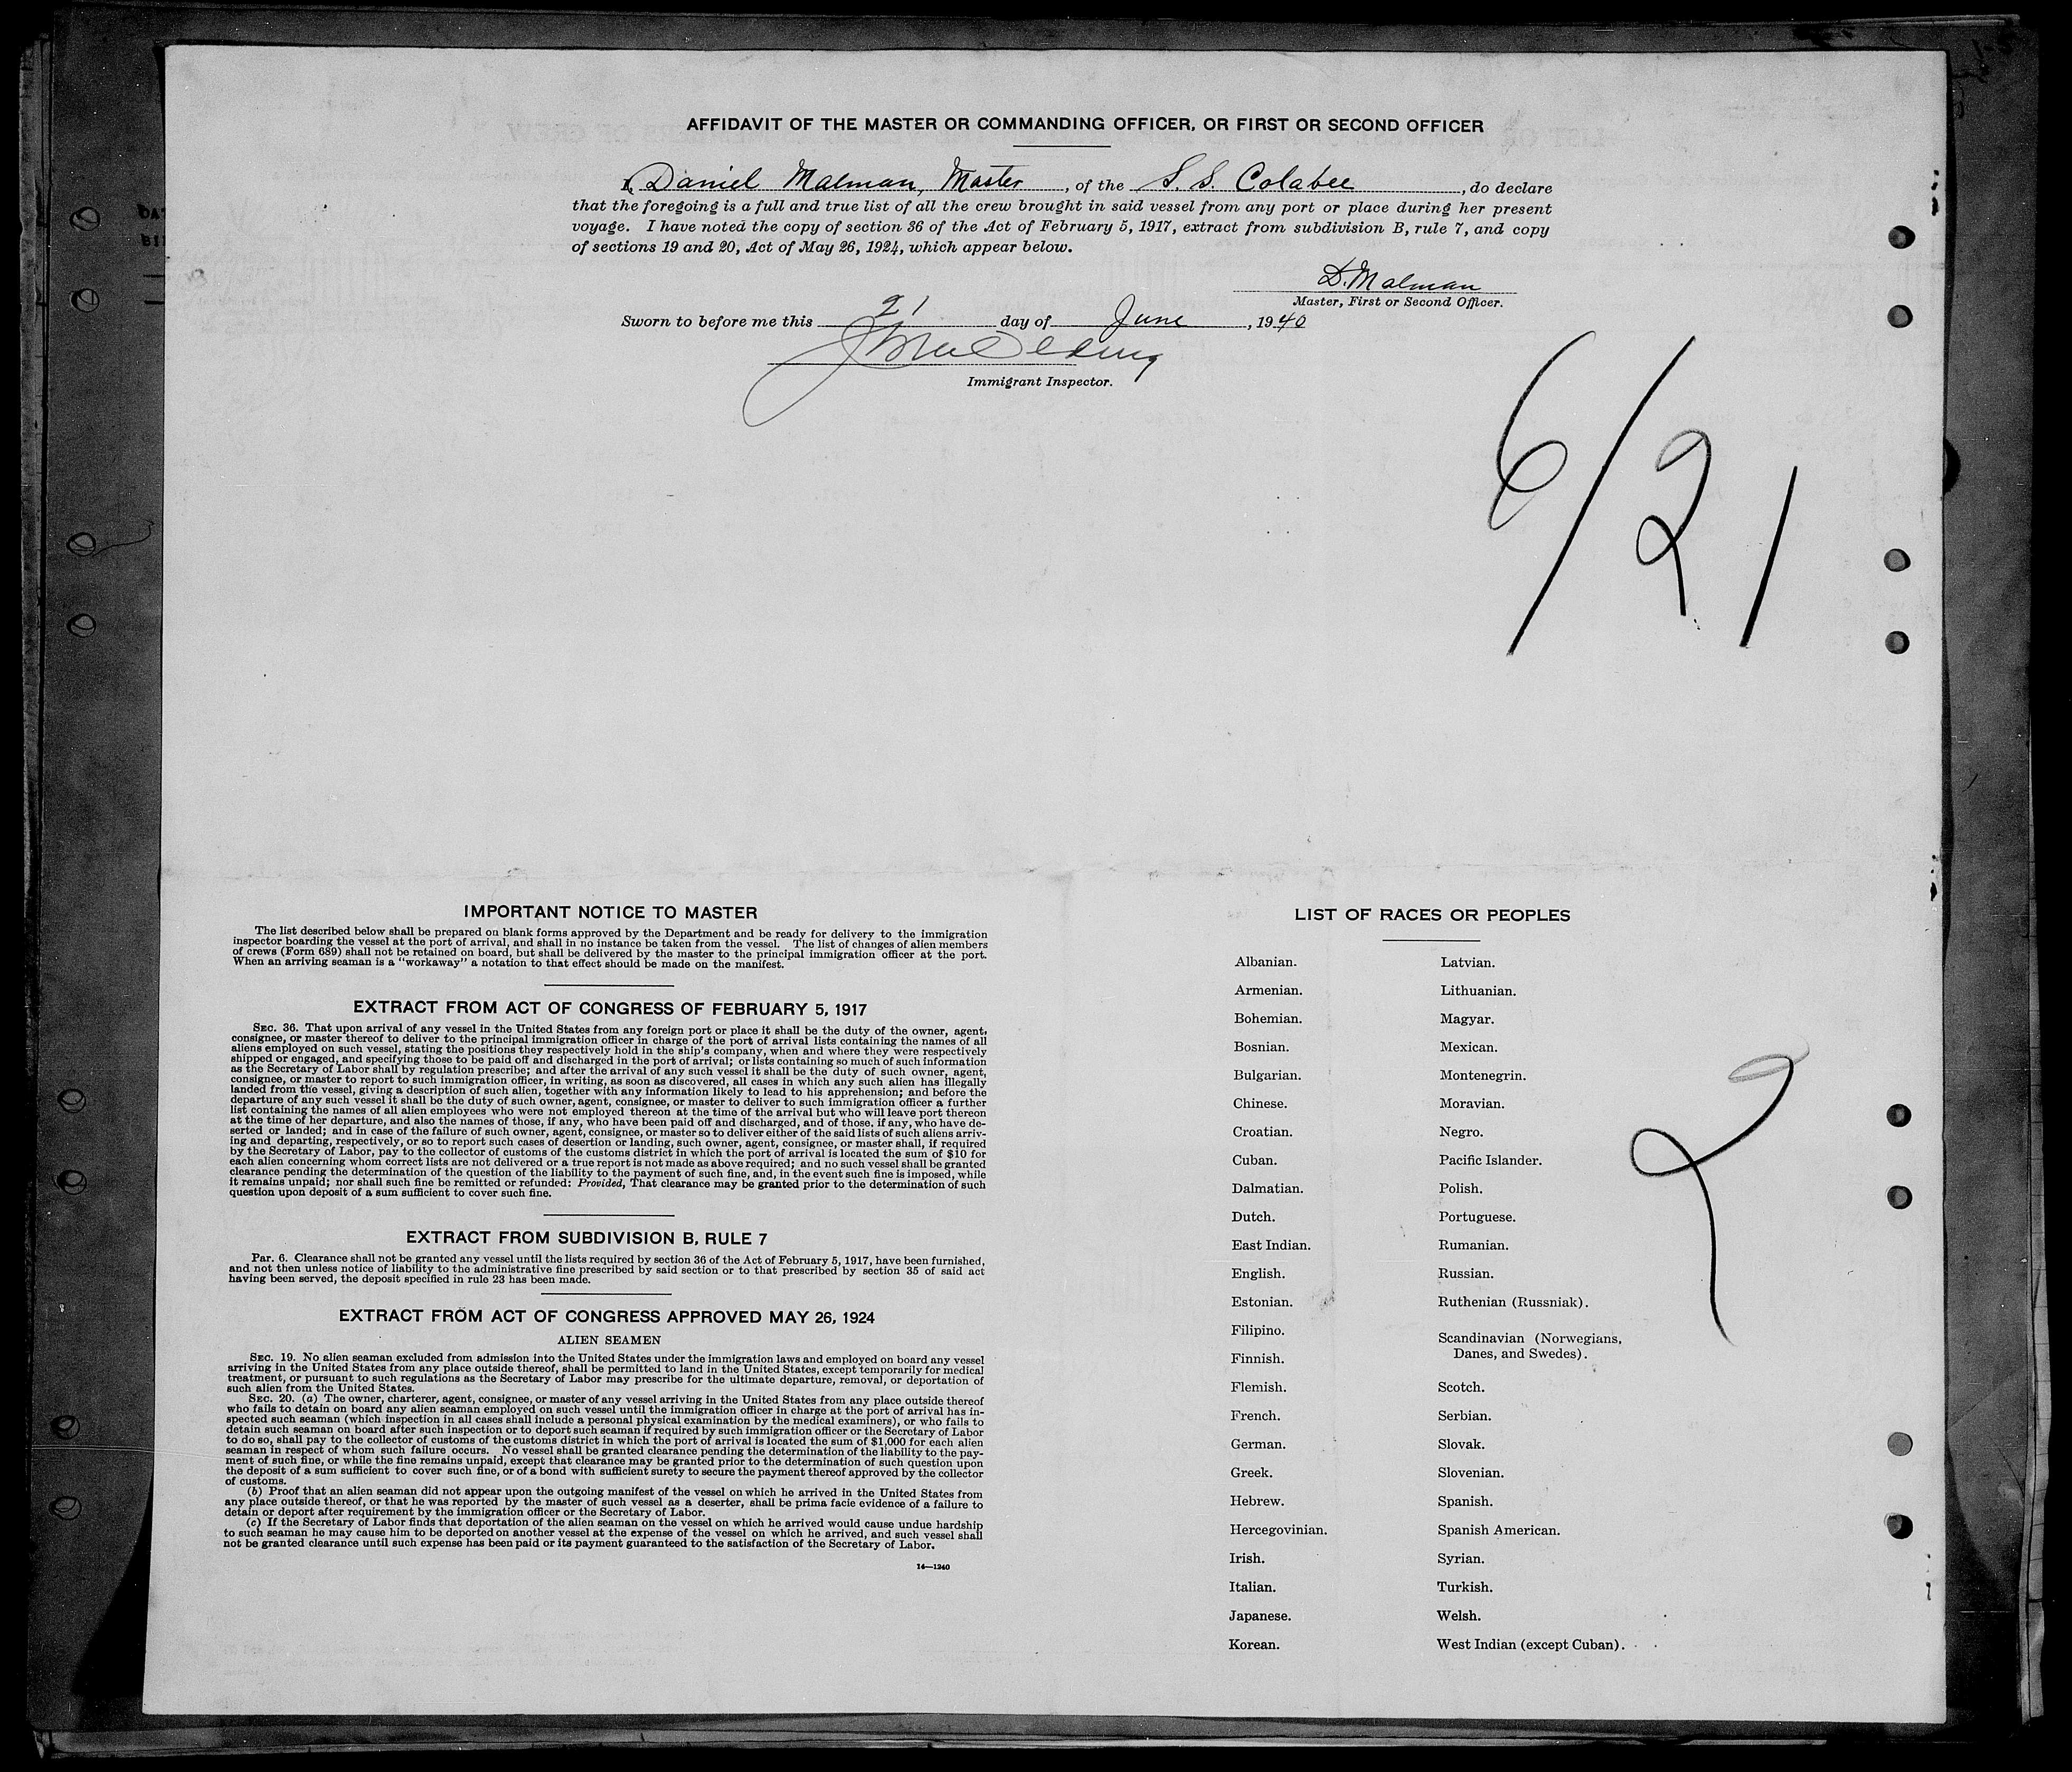 AFFIDAVIT OF THE MASTER OR COMMANDING OFFICER, OR FIRST OR SECOND OFFICER
I, Daniel Malman, Master, of the S. S. Colabee, do declare
that the foregoing is a full and true list of all the crew brought in said vessel from any port or place during her present
voyage. I have noted the copy of section 36 of the Act of February 5, 1917, extract from subdivision B, rule 7, and copy
of sections 19 and 20, Act of May 26, 1924, which appear below.
D. Malman
Master, First or Second Officer.
Sworn to before me this 21 day of June, 1940
Immigrant Inspector.
6/21
IMPORTANT NOTICE TO MASTER
The list described below shall be prepared on blank forms approved by the Department and be ready for delivery to the immigration
inspector boarding the vessel at the port of arrival, and shall in no instance be taken from the vessel. The list of changes of alien members
of crews (Form 689) shall not be retained on board, but shall be delivered by the master to the principal immigration officer at the port.
When an arriving seaman is a "workaway" a notation to that effect should be made on the manifest.
EXTRACT FROM ACT OF CONGRESS OF FEBRUARY 5, 1917
SEC. 36. That upon arrival of any vessel in the United States from any foreign port or place it shall be the duty of the owner, agent,
consignee, or master thereof to deliver to the principal immigration officer in charge of the port of arrival lists containing the names of all
aliens employed on such vessel, stating the positions they respectively hold in the ship's company, when and where they were respectively
shipped or engaged, and specifying those to be paid off and discharged in the port of arrival; or lists containing so much of such information
as the Secretary of Labor shall by regulation prescribe; and after the arrival of any such vessel it shall be the duty of such owner, agent,
consignee, or master to report to such immigration officer, in writing, as soon as discovered, all cases in which any such alien has illegally
landed from the vessel, giving a description of such alien, together with any information likely to lead to his apprehension; and before the
departure of any such vessel it shall be the duty of such owner, agent, consignee, or master to deliver to such immigration officer a further
list containing the names of all alien employees who were not employed thereon at the time of the arrival but who will leave port thereon
at the time of her departure, and also the names of those, if any, who have been paid off and discharged, and of those, if any, who have de-
serted or landed; and in case of the failure of such owner, agent, consignee, or master so to deliver either of the said lists of such aliens arriv-
ing and departing, respectively, or so to report such cases of desertion or landing, such owner, agent, consignee, or master shall, if required
by the Secretary of Labor, pay to the collector of customs of the customs district in which the port of arrival is located the sum of $10 for
each alien concerning whom correct lists are not delivered or a true report is not made as above required; and no such vessel shall be granted
clearance pending the determination of the question of the liability to the payment of such fine, and, in the event such fine is imposed, while
it remains unpaid; nor shall such fine be remitted or refunded: Provided, That clearance may be granted prior to the determination of such
question upon deposit of a sum sufficient to cover such fine.
EXTRACT FROM SUBDIVISION B, RULE 7
Par. 6. Clearance shall not be granted any vessel until the lists required by section 36 of the Act of February 5, 1917, have been furnished,
and not then unless notice of liability to the administrative fine prescribed by said section or to that prescribed by section 35 of said act
having been served, the deposit specified in rule 23 has been made.
EXTRACT FROM ACT OF CONGRESS APPROVED MAY 26, 1924
ALIEN SEAMEN
SEC. 19. No alien seaman excluded from admission into the United States under the immigration laws and employed on board any vessel
arriving in the United States from any place outside thereof, shall be permitted to land in the United States, except temporarily for medical
treatment, or pursuant to such regulations as the Secretary of Labor may prescribe for the ultimate departure, removal, or deportation of
such alien from the United States.
SEC. 20. (a) The owner, charterer, agent, consignee, or master of any vessel arriving in the United States from any place outside thereof
who fails to detain on board any alien seaman employed on such vessel until the immigration officer in charge at the port of arrival has in-
spected such seaman (which inspection in all cases shall include a personal physical examination by the medical examiners), or who fails to
detain such seaman on board after such inspection or to deport such seaman if required by such immigration officer or the Secretary of Labor
to do so, shall pay to the collector of customs of the customs district in which the port of arrival is located the sum of $1,000 for each alien
seaman in respect of whom such failure occurs. No vessel shall be granted clearance pending the determination of the liability to the pay-
ment of such fine, or while the fine remains unpaid, except that clearance may be granted prior to the determination of such question upon
the deposit of a sum sufficient to cover such fine, or of a bond with sufficient surety to secure the payment thereof approved by the collector
of customs.
(b) Proof that an alien seaman did not appear upon the outgoing manifest of the vessel on which he arrived in the United States from
any place outside thereof, or that he was reported by the master of such vessel as a deserter, shall be prima facie evidence of a failure to
detain or deport after requirement by the immigration officer or the Secretary of Labor.
(c) If the Secretary of Labor finds that deportation of the alien seaman on the vessel on which he arrived would cause undue hardship
to such seaman he may cause him to be deported on another vessel at the expense of the vessel on which he arrived, and such vessel shall
not be granted clearance until such expense has been paid or its payment guaranteed to the satisfaction of the Secretary of Labor.
14—1240
LIST OF RACES OR PEOPLES
Albanian.
Armenian.
Bohemian.
Bosnian.
Bulgarian.
Chinese.
Croatian.
Cuban.
Dalmatian.
Dutch.
East Indian.
English.
Estonian.
Filipino.
Finnish.
Flemish.
French.
German.
Greek.
Hebrew.
Hercegovinian.
Irish.
Italian.
Japanese.
Korean.
Latvian.
Lithuanian.
Magyar.
Mexican.
Montenegrin.
Moravian.
Negro.
Pacific Islander.
Polish.
Portuguese.
Rumanian.
Russian.
Ruthenian (Russniak).
Scandinavian (Norwegians,
Danes, and Swedes).
Scotch.
Serbian.
Slovak.
Slovenian.
Spanish.
Spanish American.
Syrian.
Turkish.
Welsh.
West Indian (except Cuban).
2